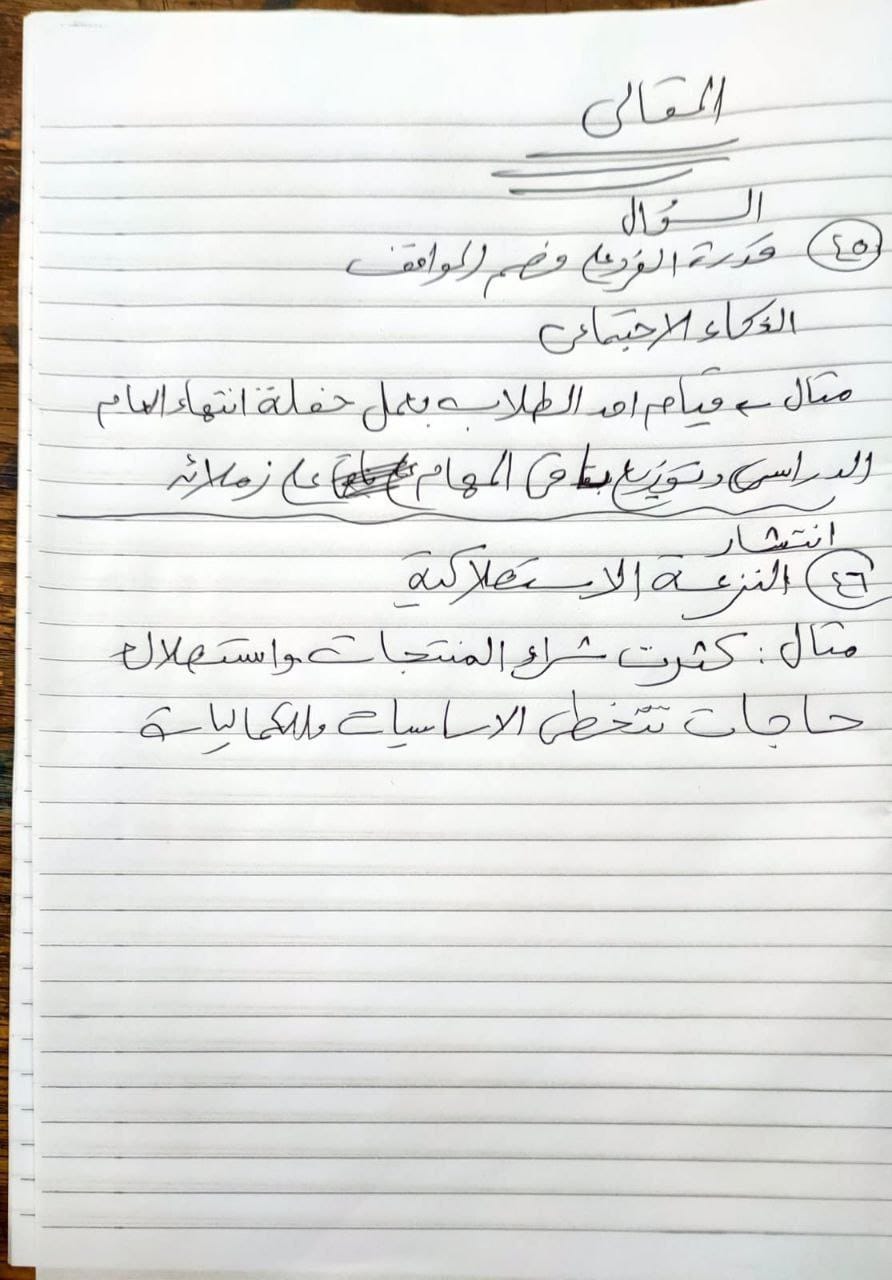 المقالى
السؤال
٤٥ قدرة الفرد على فهم المواقف
الذكاء الاجتماعى
مثال ← قيام احد الطلاب بعمل حفلة انتهاء العام
الدراسى وتوزيع باقى المهام على زملائه
انتشار
٤٦ النزعة الاستهلاكية
مثال : كثرت شراء المنتجات واستهلاك
حاجات تتخطى الاساسيات